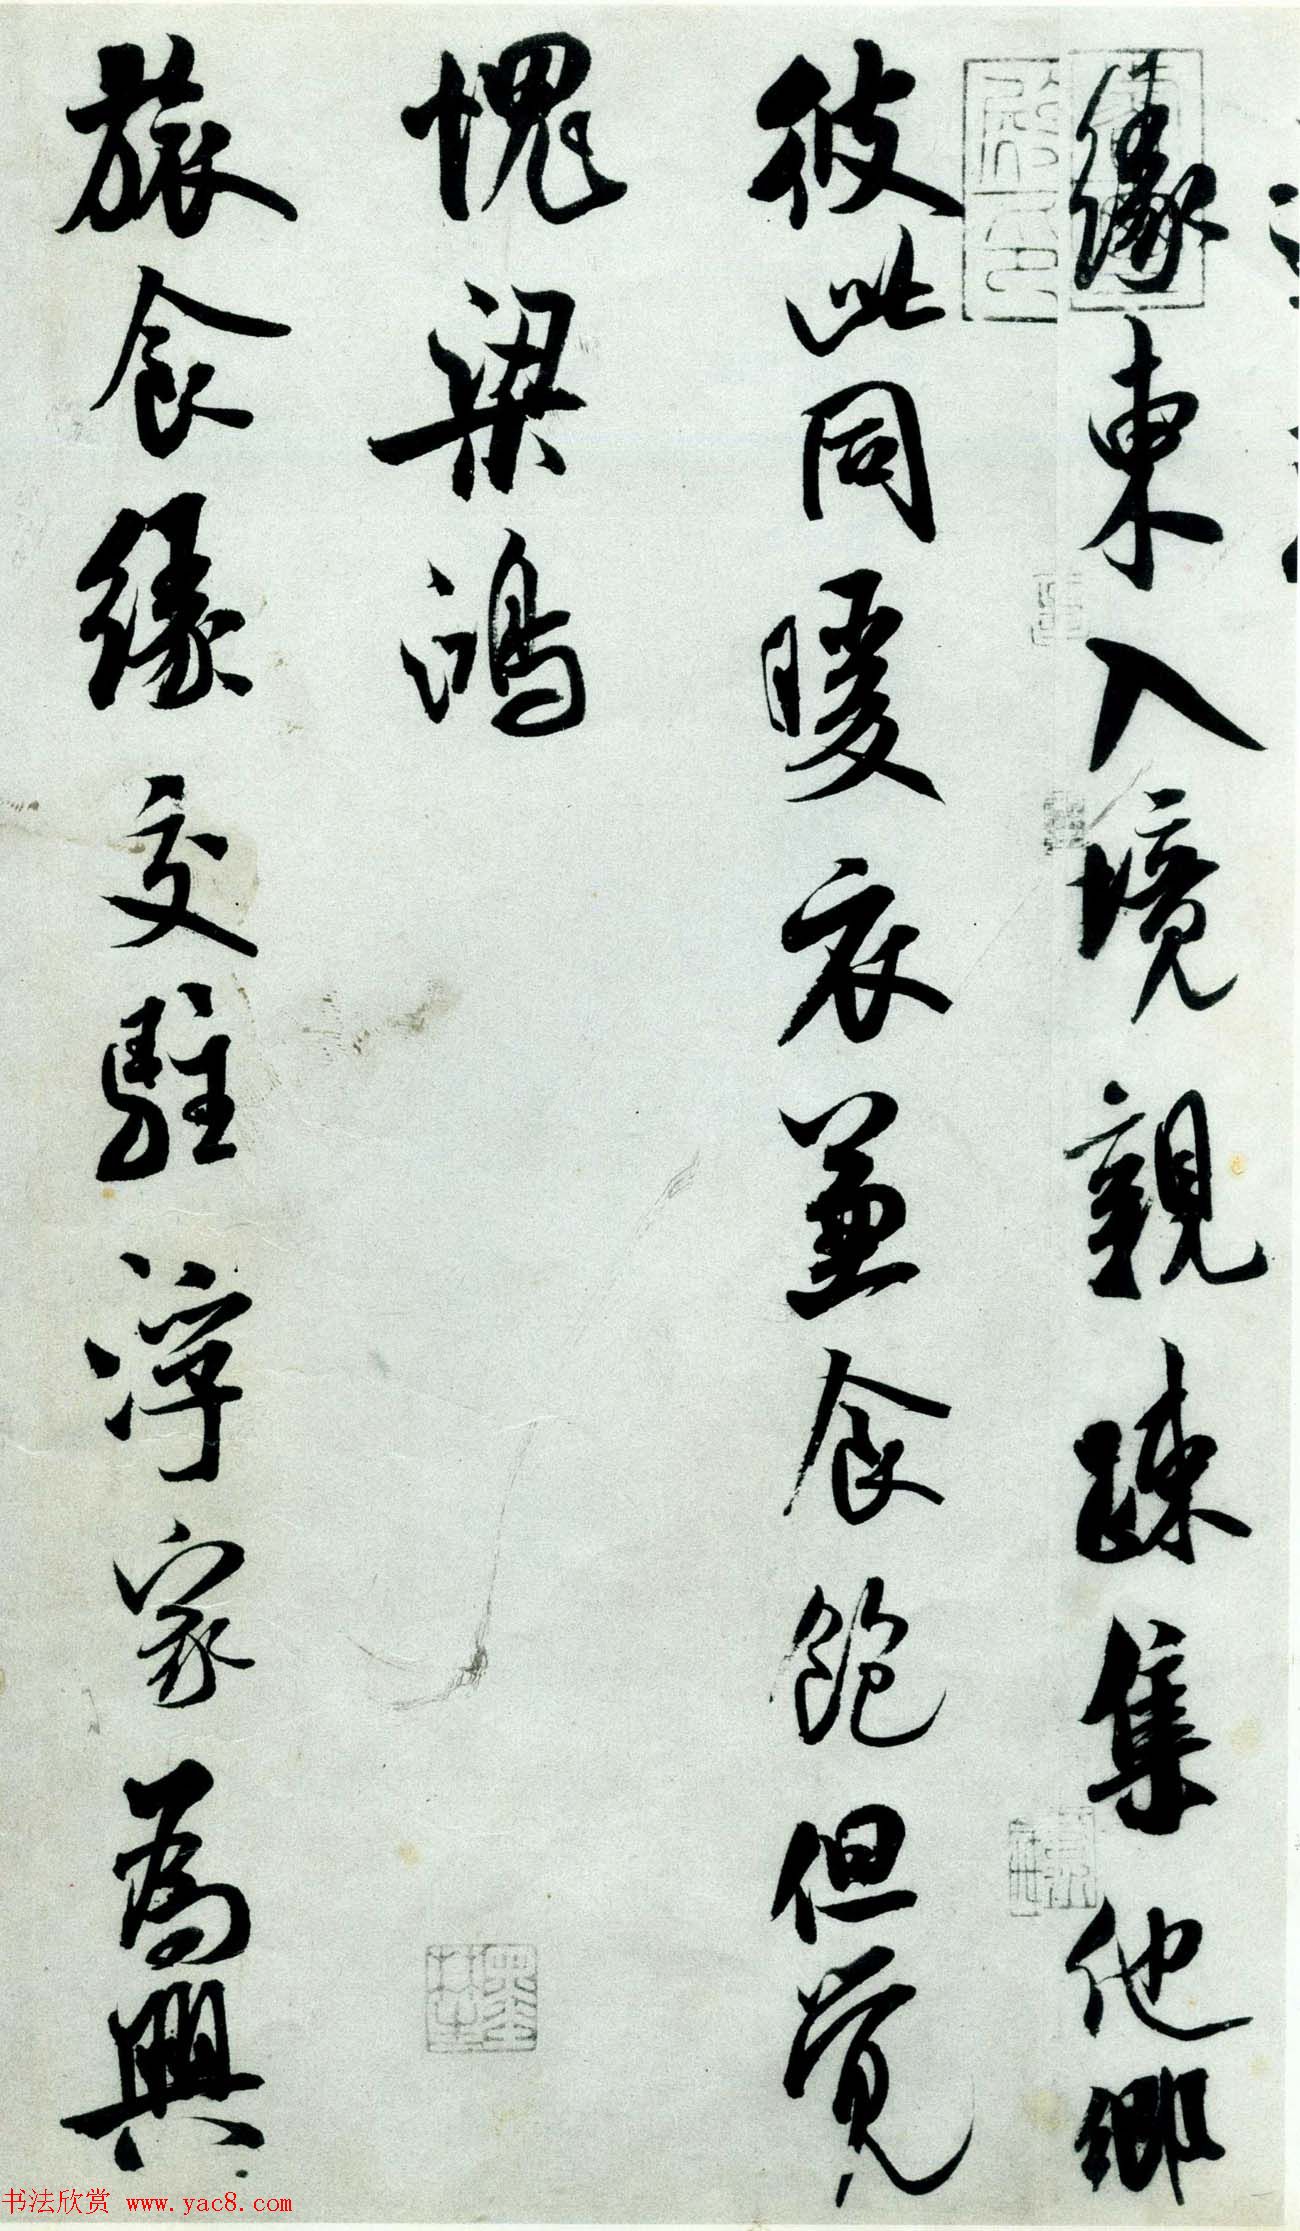 緣東入境親疎集他鄉
彼此同暖衣兼食飽但覺
愧梁鴻
旅食緣交駐浮家為興
书法欣赏 www.yac8.com